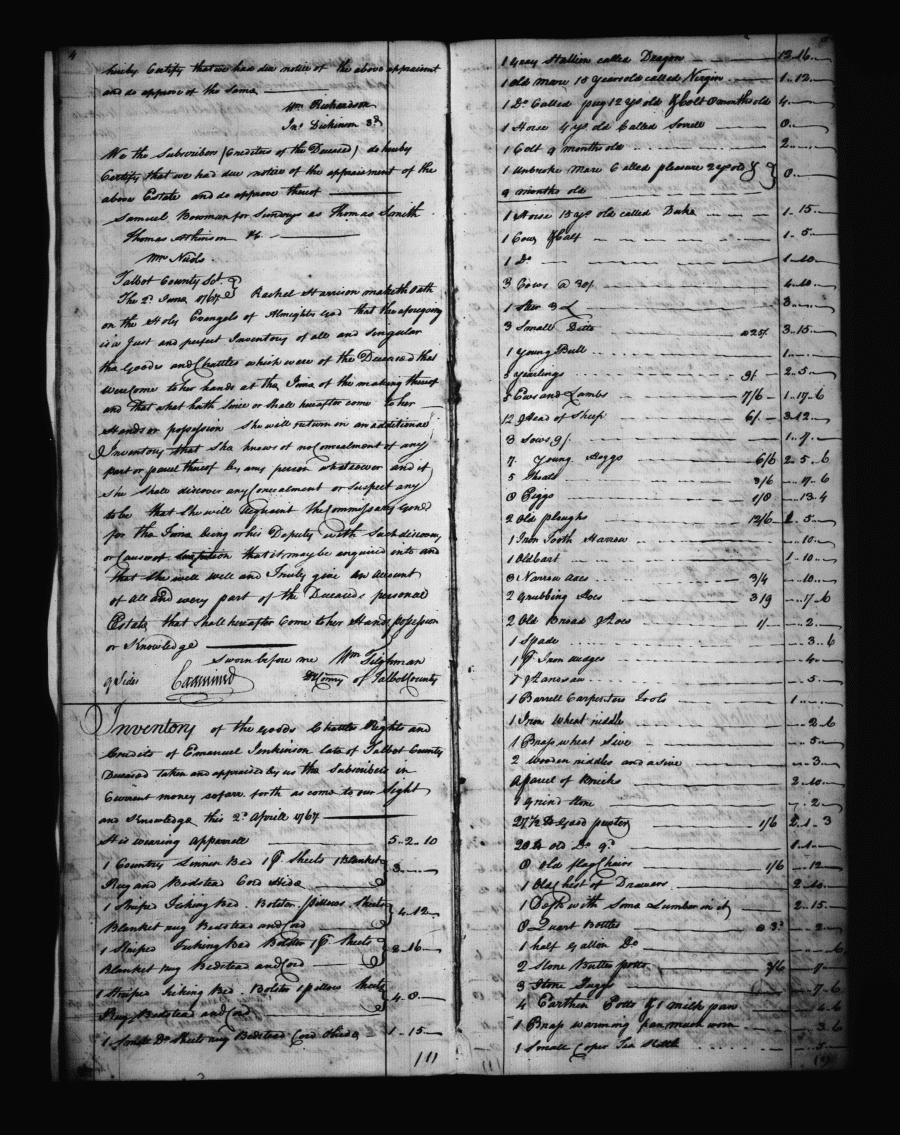 4
hereby Certify that we had due notice of the above appraisment
and do approve of the Same
Wm Richardson
Jno. Dickinson 3d
We the Subscribers (Creditors of the Deceased) do hereby
Certify that we had due notice of the appraisment of the
above Estate and do approve thereof
Samuel Bowman for Sundrys as Thomas Smith
Thomas Atkinson
Wm Nicols
Talbot County Sct.
The 2d June 1767 } Rachel Harrison maketh Oath
on the Holy Evangels of Almighty God that the aforegoing
is a Just and perfect Inventory of all and Singular
the Goods and Chattles which were of the Deceased that
were come to her hands at the Time of the making thereof
and that what hath Since or Shall hereafter come to her
Hands or possession She will return on an additional
Inventory that She knows of no Concealment of any
part or parcel thereof by any person whatsoever and if
She Shall discover any Concealment or Suspect any
to be that She will acquaint the Commissary Genl
for the Time being or his Deputy with Such discovery
or Cause of Suspition that it may be enquired into and
that She will well and Truly give an Account
of all and every part of the Deceaseds personal
Estate that Shall hereafter Come to her Hands possession
or Knowledge
Sworn before me Wm Tilghman
9 Sides Examined DComry of Talbot County
Inventory of the Goods Chattles Rights and
Credits of Emanuel Jenkinson late of Talbot County
Deceased taken and appraised by us the Subscribers in
Current money so far forth as come to our Sight
and Knowledge this 2d Aprill 1767
His wearing apparrell 5..2..10
1 Country Linnen Bed 1 pr Sheets 1 Blanket
Rug and Bedstead Cord Hide 3
1 Striped Ticking Bed Bolster pillows Sheets
Blanket rug Bedstead and Cord 4..12
1 Striped Ticking Bed Bolster 1 pr Sheets
Blanket rug Bedstead and Cord 2..16
1 Striped Ticking Bed Bolster 1 pillows Sheets
Rug Bedstead and Cord 4..0
1 Single Do Sheets rug Bedstead Cord &Hide 1..15
1 Grey Stallion called Dragon 12..16
1 old Mare 18 years old called Virgin 1..12
1 Do Called peg 12 yrs old &Colt 8 months old 4
1 Horse 4 yrs old Called Sorrell 8
1 Colt 9 months old 2
1 Unbroke Mare Called pleasure 2 yrs old &
9 months old 8
1 Horse 15 yrs old called Duke 1..15
1 Cow &Calf 1..5
1 Do 1..10
3 Cows @ 30/ 4..10
1 Steer 3
3 Small Ditto @ 25/ 3..15
1 young Bull 1
5 yearlings 9/ 2..5
5 Ews and Lambs 7/6 1..17..6
12 Head of Sheep 6/ 3..12
3 Sows 9/ 1..7
7 Young Hoggs 6/6 2..5..6
5 Shoats 3/6 17..6
8 Piggs 1/8 13..4
2 Old ploughs 12/6 1..5
1 Iron Tooth Harrow 10
1 Old Cart 1..10
3 Narrow axes 3/4 10
2 Grubbing Hoes 3/9 7..6
2 Old Broad Hoes 1/ 2
1 Spade 3..6
1 pr Iron wedges 4
1 Handsaw 5
1 Barrell Carpenters Tools 1
1 Iron Wheat riddle 2..6
1 Brass wheat Sive 5
2 Wooden riddles and a Sive 3
a parcel of Bricks 2..10
1 Grind Stone 2
27 1/2 lb Good pewter 1/6 2..1..3
20 lb old Do 9d 1..1
8 Old flag Chairs 1/6 12
1 Old Chest of Drawers 2..10
1 Desk with Some Lumber in it 2..15
8 Quart Bottles @ 3d 2
1 half Gallon Do 6
2 Stone Butter potts 3/6 7
3 Stone Juggs 7..6
4 Earthen Potts &1 milk pan 4..6
1 Brass warming pan much worn 3..6
1 Small Coper Tea Kettle 5